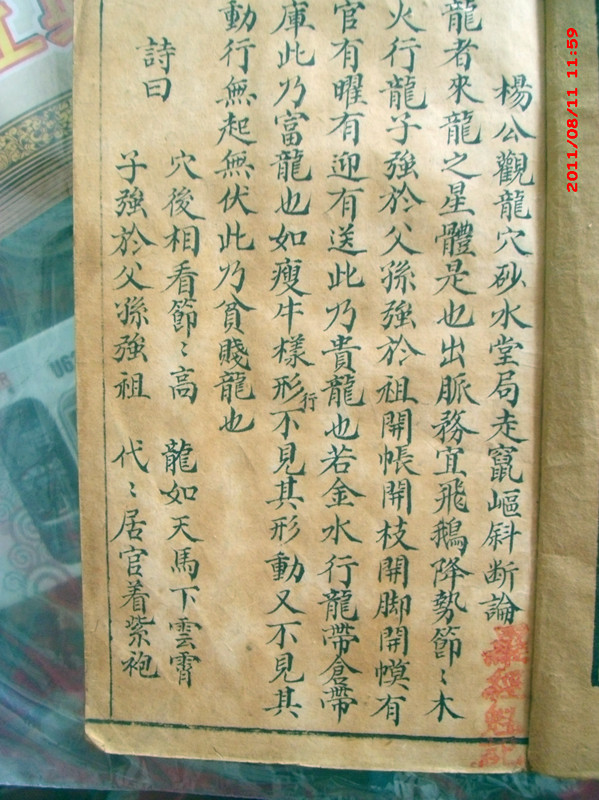 楊公觀龍穴砂水堂局走竄嶇斜断論
龍者來龍之星體是也出脈務宜飛鵝降勢節〻木
火行龍子強於父孫強於祖開帳開枝開脚開幙有
官有曜有迎有送此乃貴龍也若金水行龍帶倉帶
庫此乃富龍也如瘦牛樣形行不見其形動又不見其
動行無起無伏此乃貧賤龍也
詩曰
穴後相看節〻高 龍如天馬下雲霄
子強於父孫強祖 代〻居官着紫袍
2011/08/11 11:59